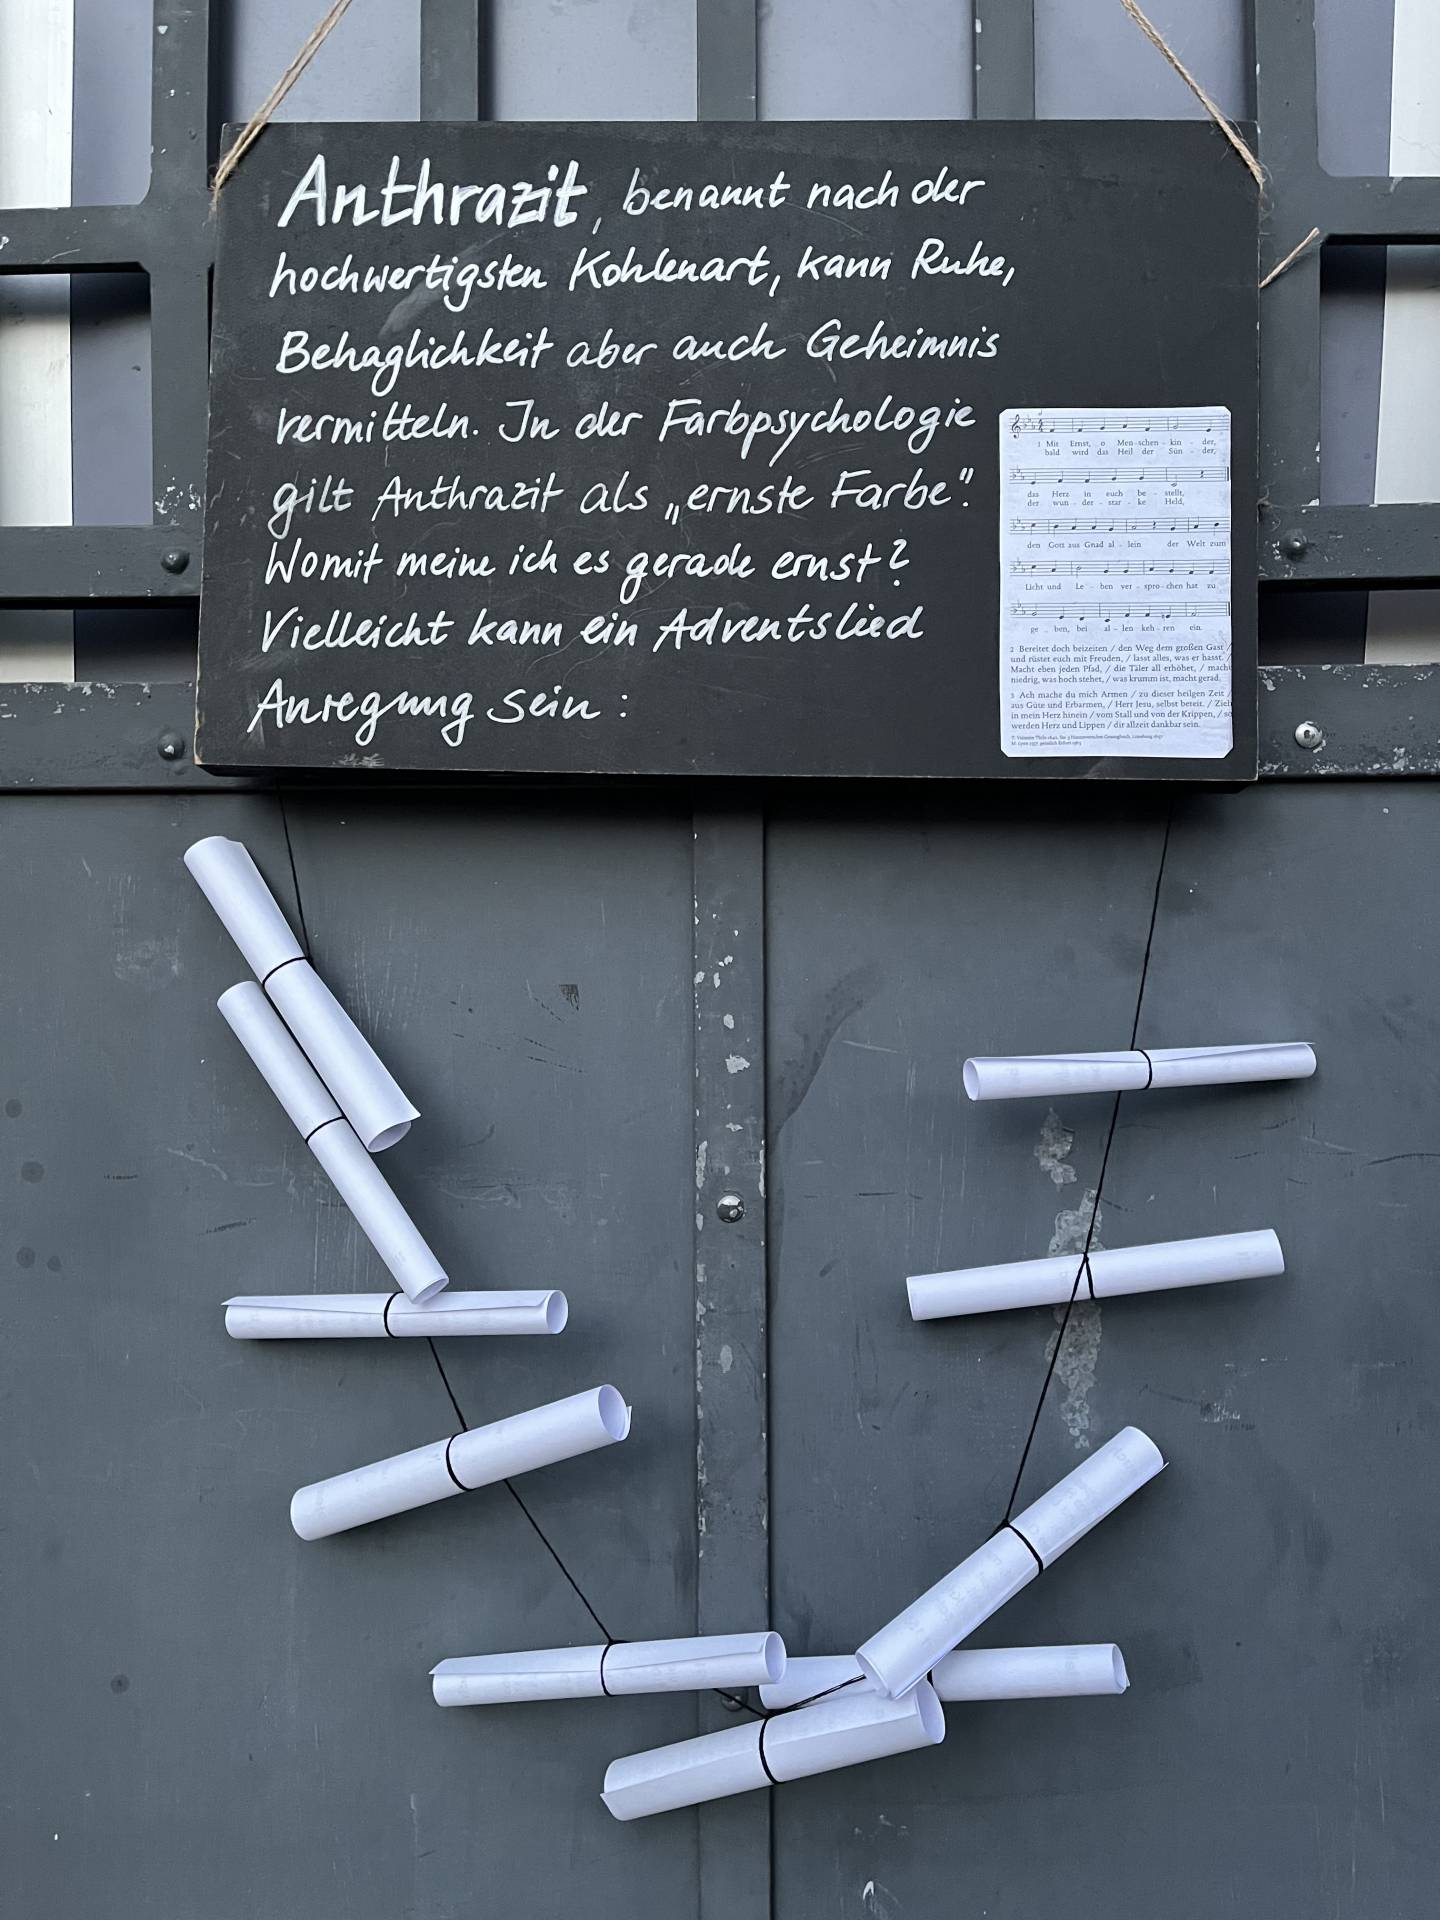 Anthrazit, benannt nach der
hochwertigsten Kohlenart, kann Ruhe,
Behaglichkeit aber auch Geheimnis
vermitteln. In der Farbpsychologie
gilt Anthrazit als „ernste Farbe".
Womit meine ich es gerade ernst?
Vielleicht kann ein Adventslied
Anregung sein:
1 Mit Ernst, o Men - schen - kin - der,
bald wird das Heil der Sün - der,
das Herz in euch be - stellt,
der wun - der - star - ke Held,
den Gott aus Gnad al - lein der Welt zum
Licht und Le - ben ver - spro - chen hat zu
ge - ben, bei al - len keh - ren ein.
2 Bereitet doch beizeiten / den Weg dem großen Gast /
und rüstet euch mit Freuden, / lasst alles, was er hasst. /
Macht eben jeden Pfad, / die Täler all erhöhet, / macht
niedrig, was hoch stehet, / was krumm ist, macht gerad.
3 Ach mache du mich Armen / zu dieser heilgen Zeit /
aus Güte und Erbarmen, / Herr Jesu, selbst bereit. / Zieh
in mein Herz hinein / vom Stall und von der Krippen, / so
werden Herz und Lippen / dir allzeit dankbar sein.